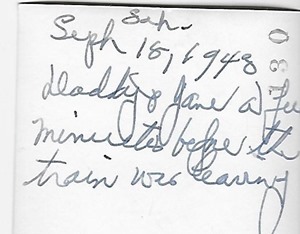 Sat.
Sept 18, 1943
Daddy & Jane a few
minutes before the
train was leaving
730